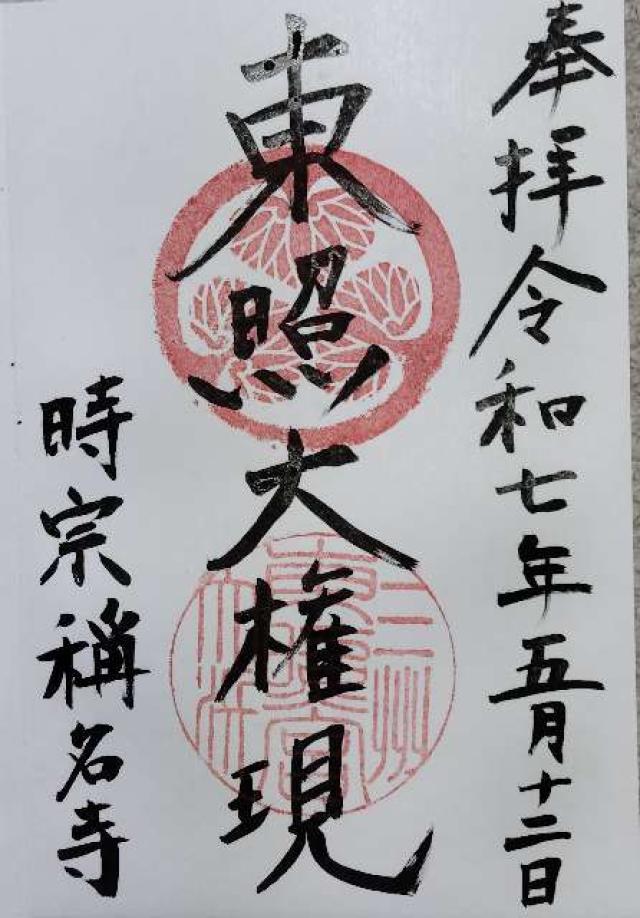 奉拝令和七年五月十二日
東照大権現
時宗稱名寺